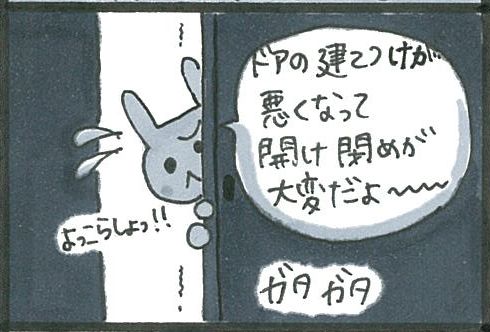 ドアの建てつけが…
悪くなって
開け閉めが
大変だよ〜〜
よっこらしょっ!!
ガタガタ